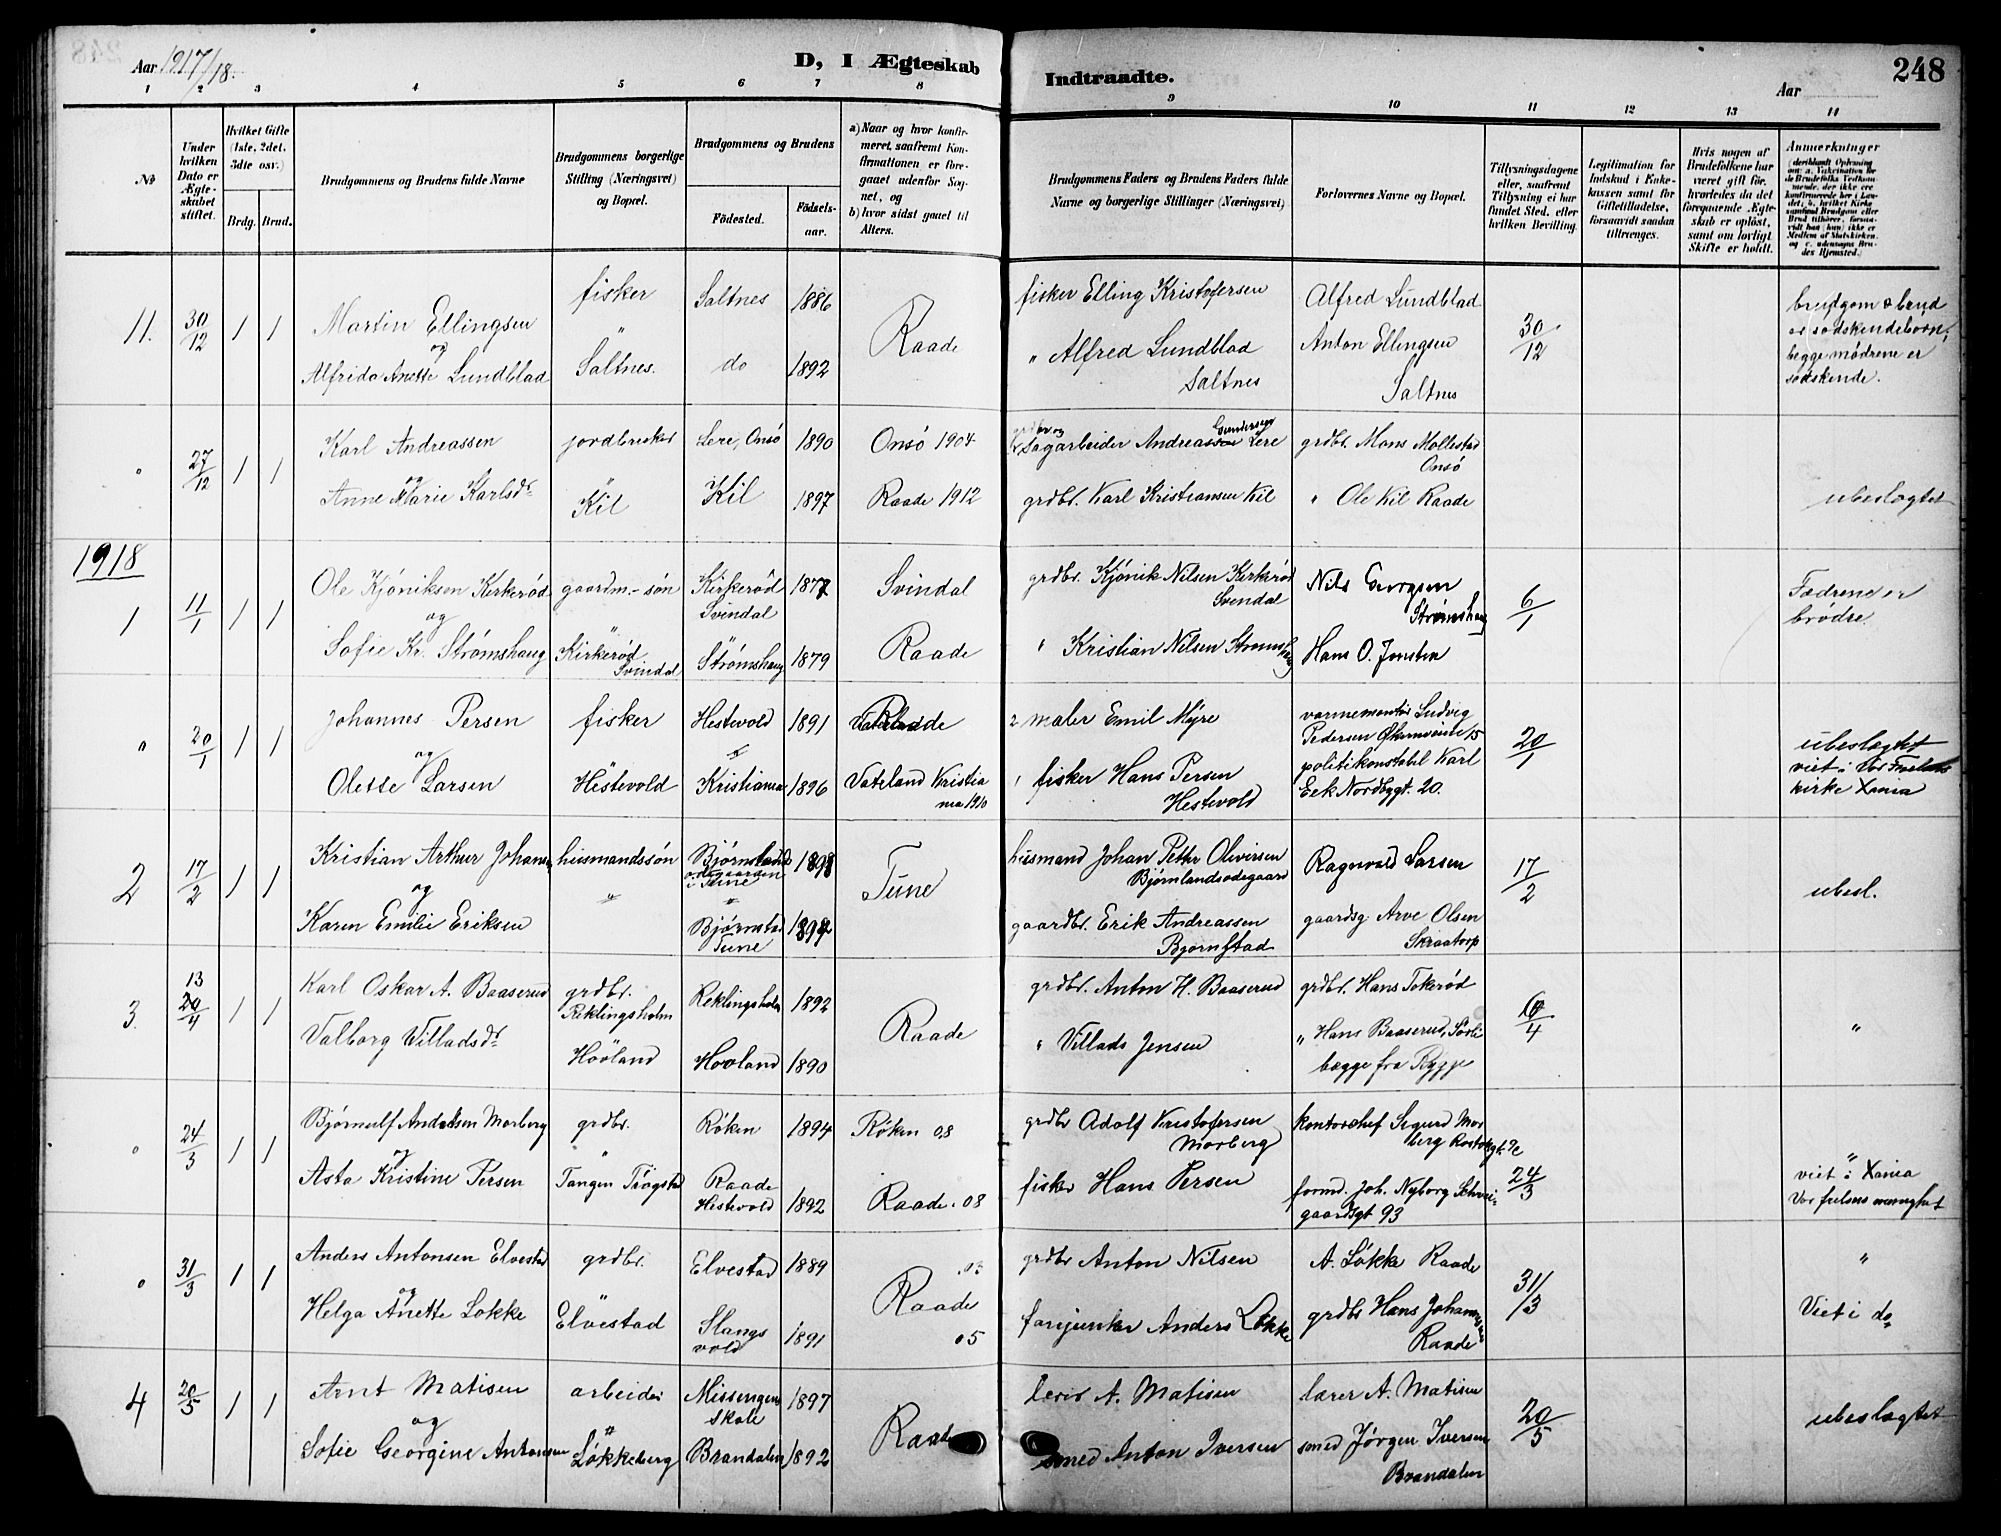 Aar 1917/18.
D, I Ægteskab
Indtraadte.
Aar
248
1 2 3 4 5 6 7 8 9 10 11 12 13 14
No
Under hvilken Dato er Ægteskabet stiftet.
Hvilket Gifte (1ste, 2det, 3die osv.)
Brdg. Brud.
Brudgommens og Brudens fulde Navne
Brudgommens borgerlige Stilling (Næringsvei) og Bopæl.
Brudgommens og Brudens
Födested.
Födselsaar.
a) Naar og hvor konfirmeret, saafremt Konfirmationen er foregaaet udenfor Sognet, og
b) hvor sidst gaaet til Alters.
Brudgommens Faders og Brudens Faders fulde Navne og borgerlige Stillinger (Næringsvei)
Forlovernes Navne og Bopæl.
Tillysningsdagene eller, saafremt Tillysning ei har fundet Sted, efter hvilken Bevilling.
Legitimation for Indskud i Enkekassen samt for Giftetilladelse, forsaavidt saadan tiltrænges.
Hvis nogen af Brudefolkene har været gift för, hvorledes da det foregaaende Ægteskab er oplöst, samt om lovligt Skifte er holdt.
Anmerkninger
11. 30/12 1 1
Martin Ellingsen
og
Alfrida Anette Lundblad
fisker
"
Saltnes.
Saltnes 1886
do 1892
Raade
fisker Elling Kristofersen
" Alfred Lundblad
Saltnes
Alfred Lundblad
Anton Ellingsen
Saltnes
30/12
brudgom & brud
er södskendebörn,
begge mødrene er
södskende.
" 27/12 1 1
Karl Andreassen
og
Anne Marie Karlsdr
jordbruker
"
Kil
Lere, Onsö 1890
Kil 1897
Onsö 1904
Raade 1912
grdbr og
Sagarbeider Andreas Gundersen Lere
grdbr. Karl Kristiansen Kil
grdbr. Mons Mollestad
Onsö
" Ole Kil Raade
ubeslægtet
1918
1 11/1 1 1
Ole Kjöniksen Kirkeröd
og
Sofie Kr. Strømshaug
gaardm.-sön
"
Kirkeröd
Svindal
Kirkeröd 1877
Svindal
"
Strømshaug 1879
Svindal
Raade
grdbr. Kjönik Nilsen Kirkeröd
Svendal
" Kristian Nilsen Strømshaug
Nils Georgsen
Strømshaug
Hans O. Jonsten
6/1
Fædrene er
brødre.
" 20/1 1 1
Johannes Persen
og
Olette Larsen
fisker
Hestevold
Hestevold 1891
"
Kristiania 1896
Raade
Vateland Kristia
nia 1910
maler Emil Myre
fisker Hans Persen
Hestevold
varmemontör Ludvig
Pedersen Økernveien 15
politikonstabl Karl
Eek Nordbygt. 20.
20/1
ubeslægtet
viet i Vor Frelsers
kirke Xania
2 17/2 1 1
Kristian Arthur Johans.
og
Karen Emilie Eriksen
husmandssön
"
Bjørnland 1898
ødegaarden
i Tune
"
Bjørnstad
Tune
Tune
husmand Johan Petter Olivirsen
Bjørnlandsødegaard
gaardbr. Erik Andreassen
Bjørnstad
Ragnvald Larsen
gaardsg. Arve Olsen
Skraatorp
17/2
ubesl.
3. 13/4 1 1
Karl Oskar A. Baaserud
Valborg Villadsdr
grdbr.
Reklingsholm
Hovland
Reklingsholm 1892
Hovland 1890
Raade
grdbr. Anton H. Baaserud
" Villads Jensen
grdbr. Hans Tokerød
" Hans Baaserud, Sörli
begge fra Rygge
6/4
"
" 24/3 1 1
Bjørnulf Andersen Morberg
og
Asta Kristine Persen
grdbr.
"
Tangen Trögstad
Røken 1894
Raade
Hestevold 1892
Røken 08
Raade. 08
grdbr Adolf Kristofersen
Morberg
fisker Hans Persen
kontorchef Sigurd Mor
berg
formd. Joh. Nyborg Schwei-
gaardsgt 93
24/3
"
viet i Xania
Vor frelsers menighet
" 31/3 1 1
Anders Antonsen Elvestad
og
Helga Anette Løkke
grdbr.
"
Elvestad
Elvestad 1889
Slangs
vold 1891
03
Raade
05
grdbr Anton Nilsen
Anders Løkke
A. Løkke Raade
grdbr Hans Johannesen
Raade
31/3
"
Viet i do.
4 20/5 1 1
Arnt Matisen
og
Sofie Georgine Antonsen
arbeider
"
Løkkeberg
Missengens 1897
Skole
Brandalen 1892
Raade
lærer A. Matisen
smed Anton Iversen
lærer A. Matisen
smed Jørgen Iversen
Brandalen
20/5
ubeslægtet